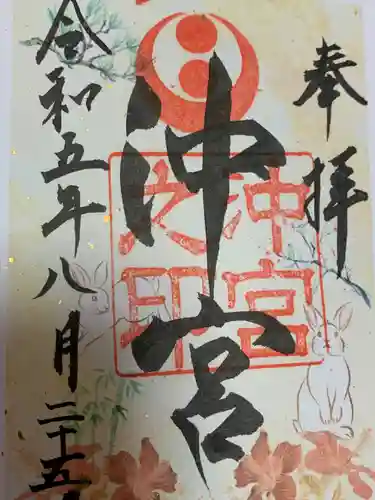 奉拝
沖宮
沖宮之印
令和五年八月二十五日